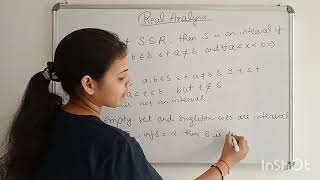 Real Analysis
S ⊆ R, then S is an interval if
b ∈ S s.t a ≠ b and ∀ a < x < b ⇒
a, b ∈ S s.t a ≠ b ∃ t s.t
a < t < b but t ∉ S
is not an interval.
Empty set and Singleton sets are intervals
inf S = α then S is
InShOt